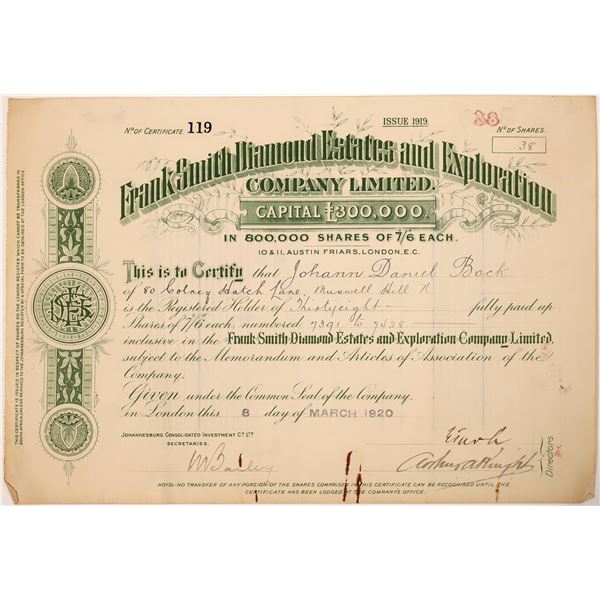 ISSUE 1919.
38
Nº OF CERTIFICATE. 119
Nº OF SHARES
38
Frank Smith Diamond Estates and Exploration
COMPANY LIMITED.
CAPITAL £300,000.
IN 800,000 SHARES OF 7/6 EACH.
10 & 11, AUSTIN FRIARS, LONDON, E.C.
This is to Certify that Johann Daniel Bock
of 80 Colney Hatch Lane, Muswell Hill N
is the Registered Holder of Thirtyeight fully paid up
Shares of 7/6 each, numbered 7391 to 7428
inclusive in the Frank Smith Diamond Estates and Exploration Company Limited,
subject to the Memorandum and Articles of Association of the
Company.
Given under the Common Seal of the Company,
in London this 8 day of MARCH 1920
JOHANNESBURG CONSOLIDATED INVESTMENT Cº Lᵀᴰ
SECRETARIES.
Arthur A Knight
Directors
NOTE:-NO TRANSFER OF ANY PORTION OF THE SHARES COMPRISED IN THIS CERTIFICATE CAN BE RECOGNISED UNTIL THE
CERTIFICATE HAS BEEN LODGED AT THE COMPANY'S OFFICE.
THIS CERTIFICATE IS ISSUED IN RESPECT OF SHARES ON THE LONDON REGISTER WHICH CANNOT BE TRANSFERRED IN
SOUTH AFRICA UNLESS REMOVED TO THE JOHANNESBURG REGISTER BY A SPECIAL FORM TO BE OBTAINED AT THE LONDON OFFICE.